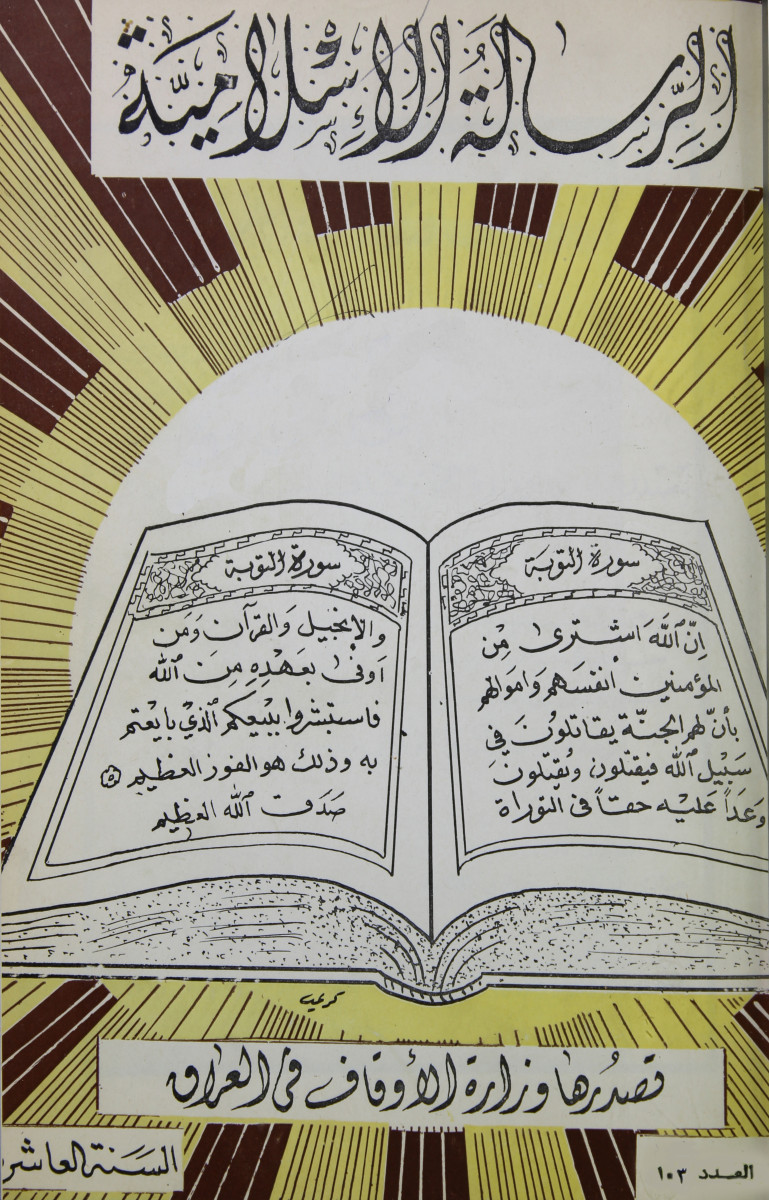 الرِّسالَةُ الإسْلامِيَّة
سورة التوبَة
اِنَّ ٱللّٰهَ اشترى مِن
المؤمنين أنفسَهم وَاموالهم
بأنّ لهم الجنّة يقاتلوْنَ في
سَبيْل ٱللّٰه فيقتلون ويُقتلونَ
وعَداً عَليْه حقاً في التوراة
سورة التوبة
والإنجيل والقرآن ومَن
اَوفىٰ بعَهْدِهِ مِنَ ٱللّٰه
فاستبشروا ببيْعكم ٱلذيْ بايعْتم
به وذلك هو الفوز العظيم
صَدَق ٱللّٰه العظيم
تصدُرها وزارة الأوقاف في العراق
السَنة العاشر
العدد ١٠٣